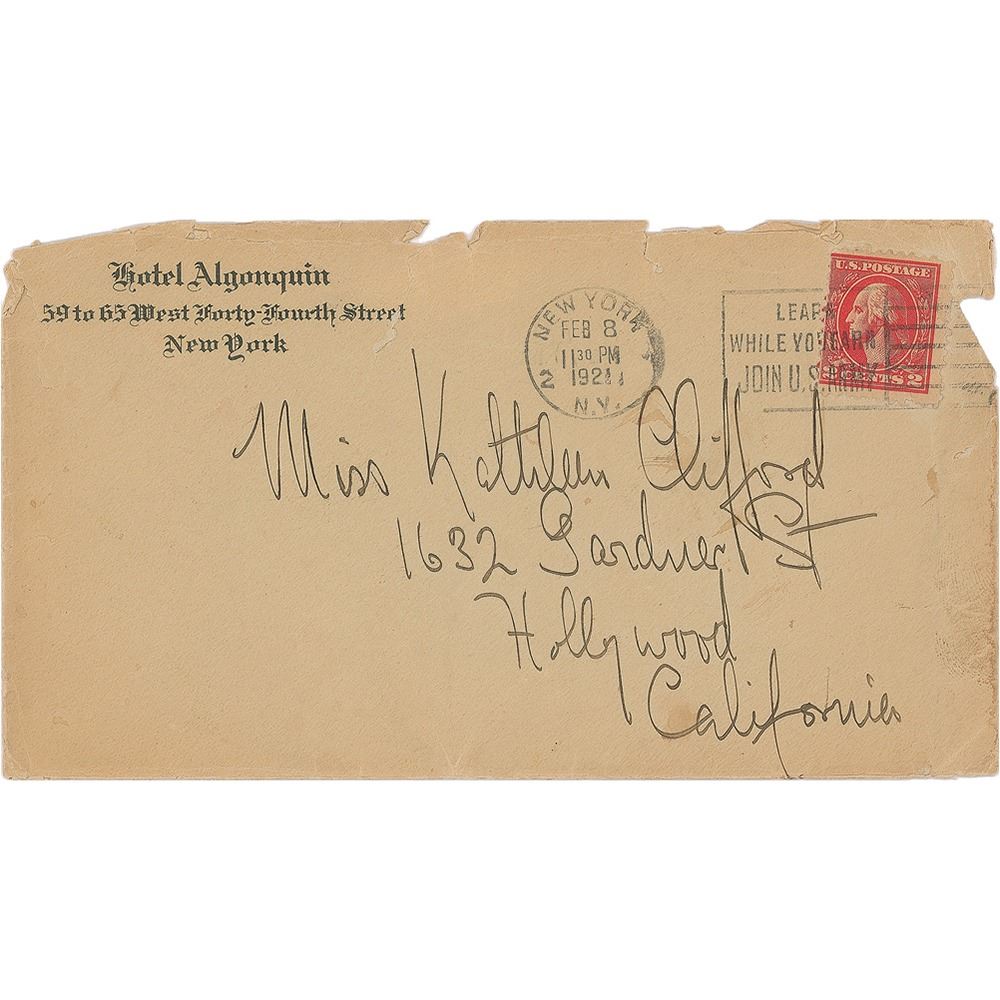 Hotel Algonquin
59 to 65 West Forty-Fourth Street
New York
NEW YORK
FEB 8
11 30 PM
1921
N.Y.
2
LEARN
WHILE YOU EARN
JOIN U.S. ARMY
U.S. POSTAGE
2 CENTS 2
Miss Kathleen Clifford
1632 Gardner St
Hollywood
California